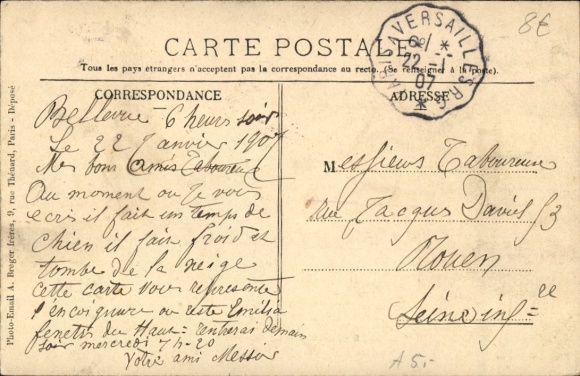 8€
A VERSAILLES R.G.
6e/ *
22 -1
07
CARTE POSTALE
Tous les pays étrangers n'acceptent pas la correspondance au recto. (Se renseigner à la poste).
CORRESPONDANCE
ADRESSE
Bellevue - 6 heures soir
Le 22 Janvier 1907
Mes bons Amis Taboureux
Au moment ou Je vous
ecris il fait un temps de
chien il fait froid et
tombe de la neige
cette carte vous represente
l'encoignure ou reste Emilia
fenetre du Haut = rentrerai demain
soir mercredi 7h-20
Votre ami Messier
Messieurs Taboureux
rue Jacques Daviel 53
Rouen
Seine inf=re
A 5.-
Photo-Email A. Breger frères, 9, rue Thénard, Paris - Déposé